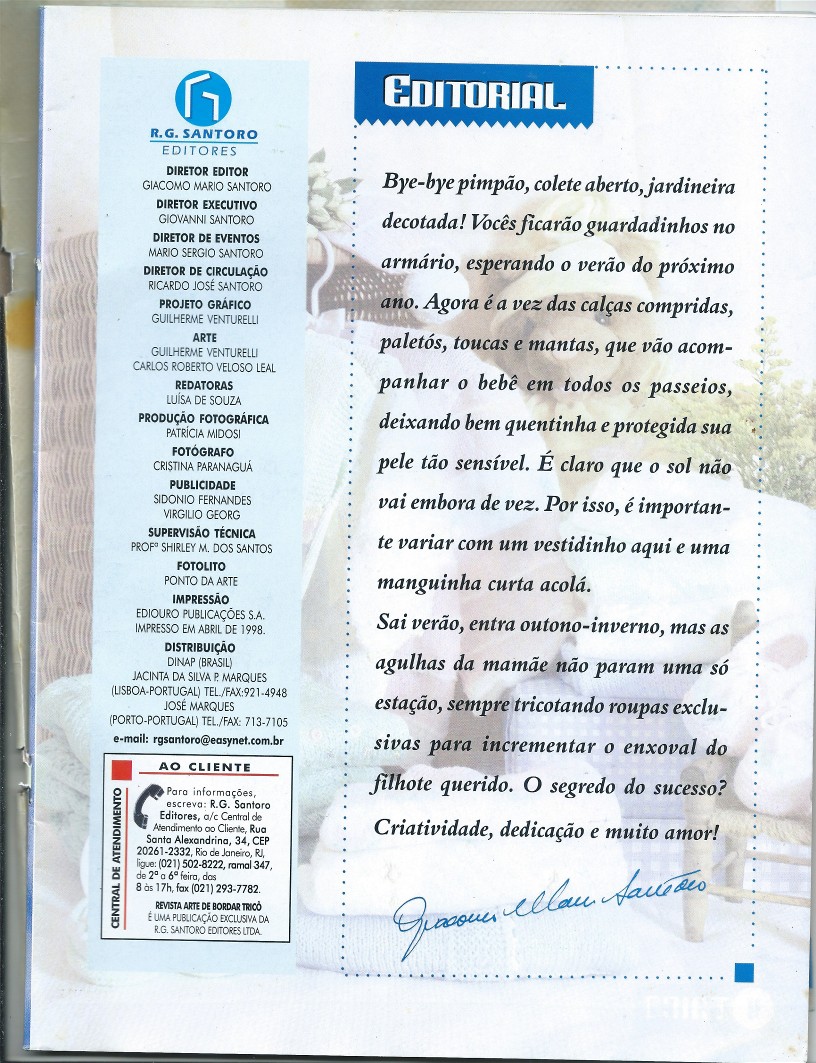 R.G. SANTORO
EDITORES
DIRETOR EDITOR
GIACOMO MARIO SANTORO
DIRETOR EXECUTIVO
GIOVANNI SANTORO
DIRETOR DE EVENTOS
MARIO SERGIO SANTORO
DIRETOR DE CIRCULAÇÃO
RICARDO JOSÉ SANTORO
PROJETO GRÁFICO
GUILHERME VENTURELLI
ARTE
GUILHERME VENTURELLI
CARLOS ROBERTO VELOSO LEAL
REDATORAS
LUÍSA DE SOUZA
PRODUÇÃO FOTOGRÁFICA
PATRÍCIA MIDOSI
FOTÓGRAFO
CRISTINA PARANAGUÁ
PUBLICIDADE
SIDONIO FERNANDES
VIRGILIO GEORG
SUPERVISÃO TÉCNICA
PROFª SHIRLEY M. DOS SANTOS
FOTOLITO
PONTO DA ARTE
IMPRESSÃO
EDIOURO PUBLICAÇÕES S.A.
IMPRESSO EM ABRIL DE 1998.
DISTRIBUIÇÃO
DINAP (BRASIL)
JACINTA DA SILVA P. MARQUES
(LISBOA-PORTUGAL) TEL./FAX:921-4948
JOSÉ MARQUES
(PORTO-PORTUGAL) TEL./FAX: 713-7105
e-mail: rgsantoro@easynet.com.br
AO CLIENTE
CENTRAL DE ATENDIMENTO
Para informações,
escreva: R.G. Santoro
Editores, a/c Central de
Atendimento ao Cliente, Rua
Santa Alexandrina, 34, CEP
20261-2332, Rio de Janeiro, RJ,
ligue: (021) 502-8222, ramal 347,
de 2ª a 6ª feira, das
8 às 17h, fax (021) 293-7782.
REVISTA ARTE DE BORDAR TRICÔ
É UMA PUBLICAÇÃO EXCLUSIVA DA
R.G. SANTORO EDITORES LTDA.
EDITORIAL
Bye-bye pimpão, colete aberto, jardineira
decotada! Vocês ficarão guardadinhos no
armário, esperando o verão do próximo
ano. Agora é a vez das calças compridas,
paletós, toucas e mantas, que vão acom-
panhar o bebê em todos os passeios,
deixando bem quentinha e protegida sua
pele tão sensível. É claro que o sol não
vai embora de vez. Por isso, é importan-
te variar com um vestidinho aqui e uma
manguinha curta acolá.
Sai verão, entra outono-inverno, mas as
agulhas da mamãe não param uma só
estação, sempre tricotando roupas exclu-
sivas para incrementar o enxoval do
filhote querido. O segredo do sucesso?
Criatividade, dedicação e muito amor!
Giacomo Mario Santoro